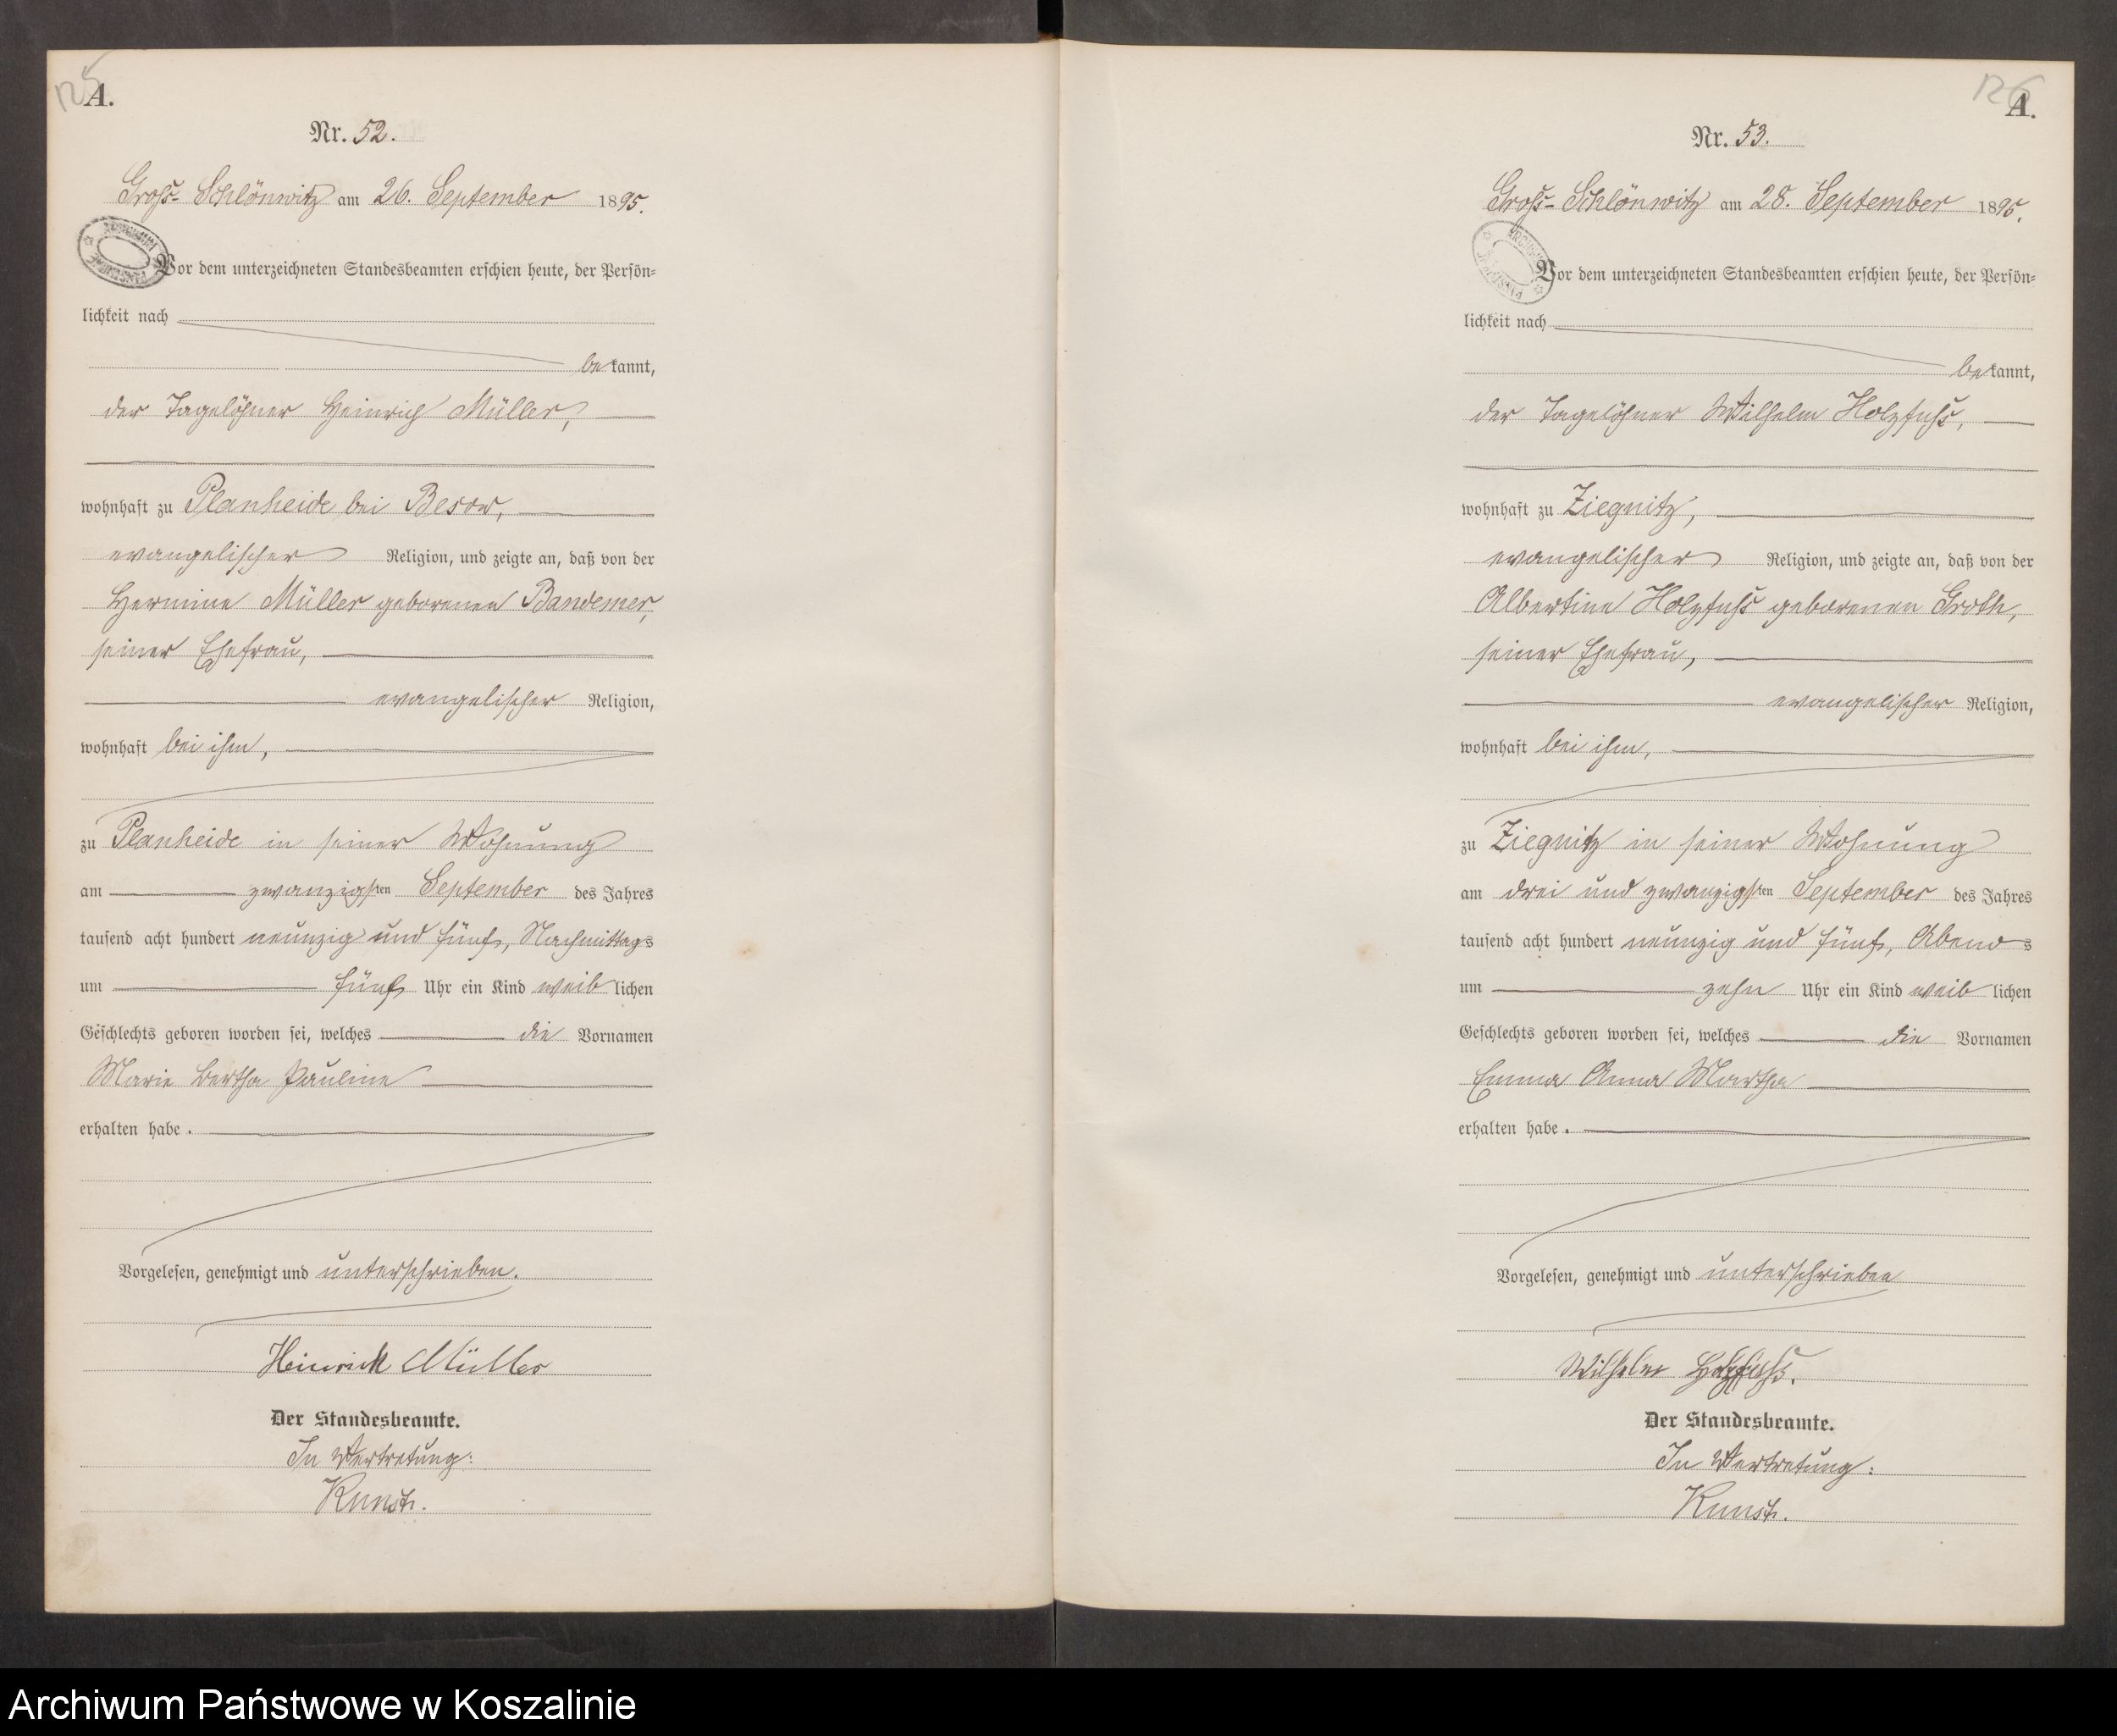 125
A.
Nr. 52.
Groß-Schlönwitz am 26. September 1895.
Vor dem unterzeichneten Standesbeamten erschien heute, der Persön=
lichkeit nach
bekannt,
der Tagelöhner Heinrich Müller,
wohnhaft zu Planheide bei Besow,
evangelischer Religion, und zeigte an, daß von der
Hermine Müller geborenen Bandemer,
seiner Ehefrau,
evangelischer Religion,
wohnhaft bei ihm,
zu Planheide in seiner Wohnung
am zwanzigsten September des Jahres
tausend acht hundert neunzig und fünf, Nachmittags
um fünf Uhr ein Kind weiblichen
Geschlechts geboren worden sei, welches die Vornamen
Marie Bertha Pauline
erhalten habe.
Vorgelesen, genehmigt und unterschrieben.
Heinrich Müller
Der Standesbeamte.
In Vertretung:
Kunst.
126
A.
Nr. 53.
Groß-Schlönwitz am 28. September 1895.
Vor dem unterzeichneten Standesbeamten erschien heute, der Persön=
lichkeit nach
bekannt,
der Tagelöhner Wilhelm Holzfuß,
wohnhaft zu Ziegnitz,
evangelischer Religion, und zeigte an, daß von der
Albertine Holzfuß geborenen Groth,
seiner Ehefrau,
evangelischer Religion,
wohnhaft bei ihm,
zu Ziegnitz in seiner Wohnung
am drei und zwanzigsten September des Jahres
tausend acht hundert neunzig und fünf, Abends
um zehn Uhr ein Kind weiblichen
Geschlechts geboren worden sei, welches die Vornamen
Emma Anna Martha
erhalten habe.
Vorgelesen, genehmigt und unterschrieben
Wilhelm Holzfuß.
Der Standesbeamte.
In Vertretung:
Kunst.
Archiwum Państwowe w Koszalinie